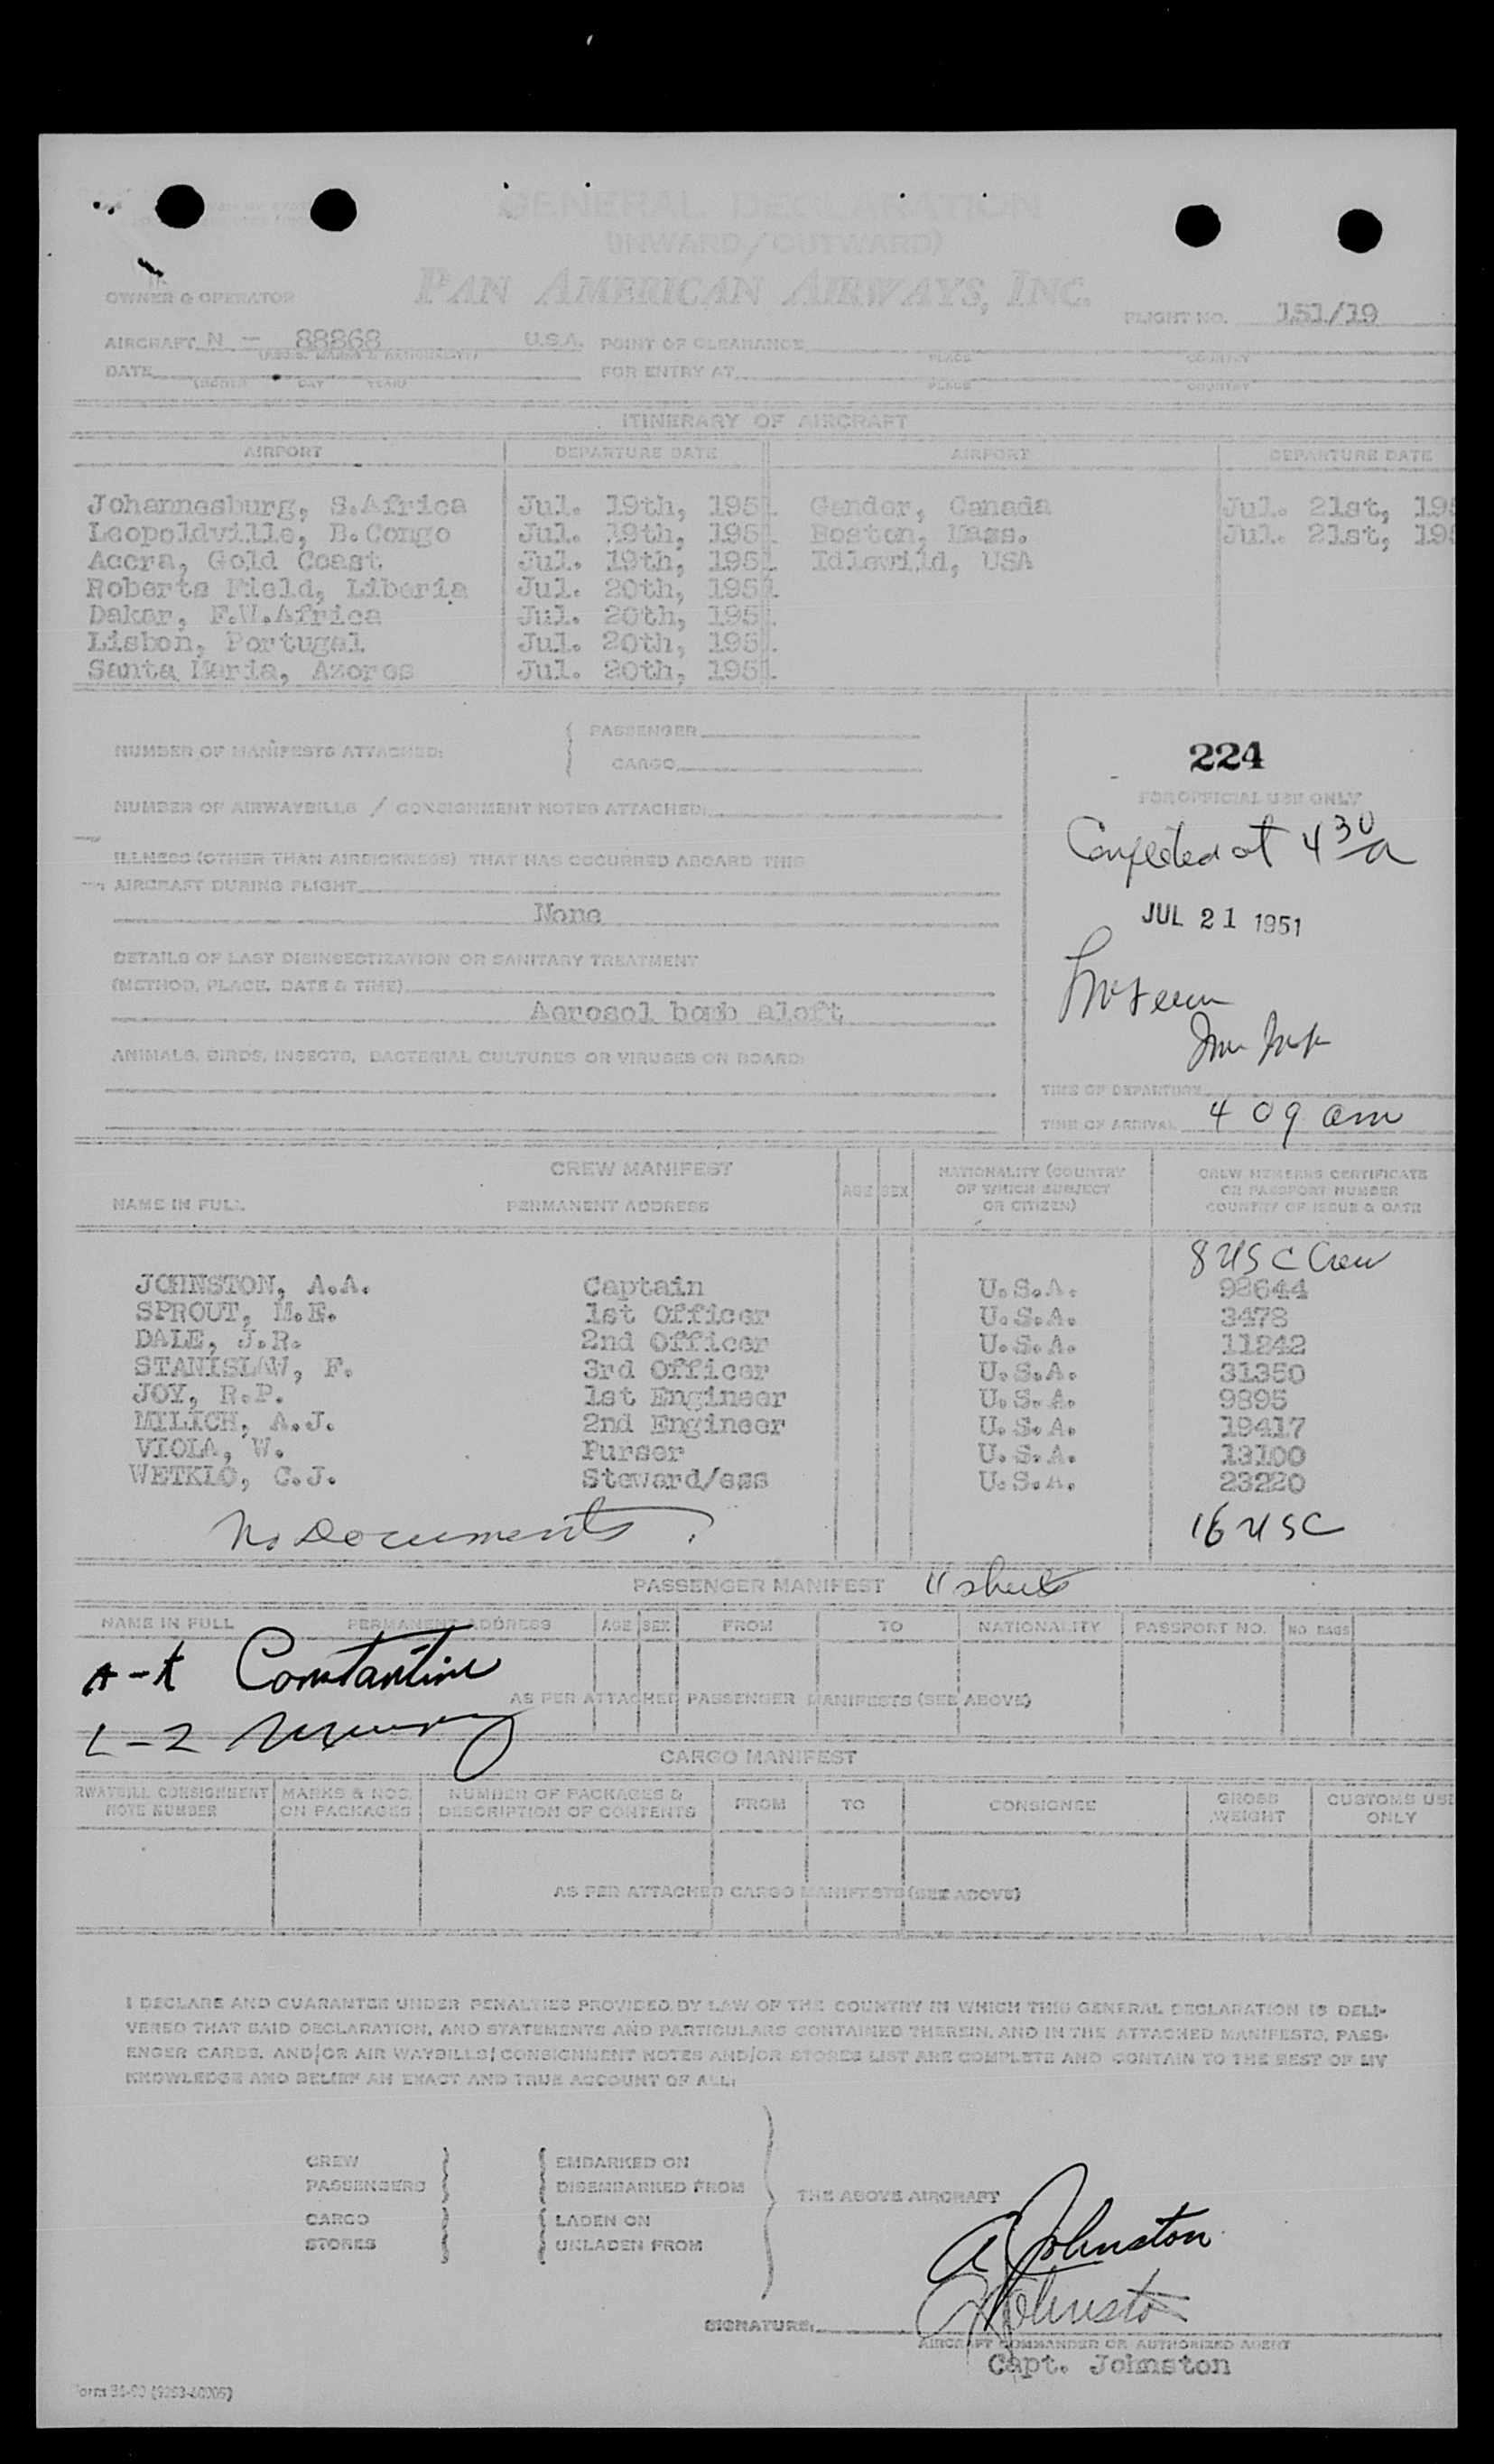 GENERAL DECLARATION
(INWARD/OUTWARD)
PAN AMERICAN AIRWAYS, INC.
OWNER & OPERATOR
FLIGHT NO. 151/19
AIRCRAFT N - 88868 U.S.A. POINT OF CLEARANCE
PLACE COUNTRY
DATE FOR ENTRY AT
(MONTH DAY YEAR) PLACE COUNTRY
ITINERARY OF AIRCRAFT
AIRPORT DEPARTURE DATE AIRPORT DEPARTURE DATE
Johannesburg, S.Africa Jul. 19th, 1951. Gander, Canada Jul. 21st, 195
Leopoldville, B.Congo Jul. 19th, 1951. Boston, Mass. Jul. 21st, 195
Accra, Gold Coast Jul. 19th, 1951. Idlewild, USA
Roberts Field, Liberia Jul. 20th, 1951.
Dakar, F.W.Africa Jul. 20th, 1951.
Lisbon, Portugal Jul. 20th, 1951.
Santa Maria, Azores Jul. 20th, 1951.
NUMBER OF MANIFESTS ATTACHED: PASSENGER
CARGO
224
FOR OFFICIAL USE ONLY
NUMBER OF AIRWAYBILLS / CONSIGNMENT NOTES ATTACHED:
Completed at 4 30 a
ILLNESS (OTHER THAN AIRSICKNESS) THAT HAS OCCURRED ABOARD THIS
AIRCRAFT DURING FLIGHT
None
JUL 21 1951
DETAILS OF LAST DISINSECTIZATION OR SANITARY TREATMENT
(METHOD, PLACE, DATE & TIME)
Aerosol bomb aloft
ANIMALS, BIRDS, INSECTS, BACTERIAL CULTURES OR VIRUSES ON BOARD:
TIME OF DEPARTURE
TIME OF ARRIVAL 4 09 am
CREW MANIFEST
NAME IN FULL PERMANENT ADDRESS AGE SEX NATIONALITY (COUNTRY OF WHICH SUBJECT OR CITIZEN) CREW MEMBERS CERTIFICATE OR PASSPORT NUMBER COUNTRY OF ISSUE & DATE
8 USC Crew
JOHNSTON, A.A. Captain U.S.A. 92644
SPROUT, M.E. 1st Officer U.S.A. 3478
DALE, J.R. 2nd Officer U.S.A. 11242
STANISLAW, F. 3rd Officer U.S.A. 31350
JOY, R.P. 1st Engineer U.S.A. 9895
MILICH, A.J. 2nd Engineer U.S.A. 19417
VIOLA, W. Purser U.S.A. 13100
WETKLO, C.J. Steward/ess U.S.A. 23220
No Documents
16 USC
PASSENGER MANIFEST 11 sheets
NAME IN FULL PERMANENT ADDRESS AGE SEX FROM TO NATIONALITY PASSPORT NO. NO. BAGS
A-K Constantine
AS PER ATTACHED PASSENGER MANIFESTS (SEE ABOVE)
L-Z
CARGO MANIFEST
RWAYBILL CONSIGNMENT NOTE NUMBER MARKS & NOS. ON PACKAGES NUMBER OF PACKAGES & DESCRIPTION OF CONTENTS FROM TO CONSIGNEE GROSS WEIGHT CUSTOMS USE ONLY
AS PER ATTACHED CARGO MANIFESTS (SEE ABOVE)
I DECLARE AND GUARANTEE UNDER PENALTIES PROVIDED BY LAW OF THE COUNTRY IN WHICH THIS GENERAL DECLARATION IS DELI-
VERED THAT SAID DECLARATION, AND STATEMENTS AND PARTICULARS CONTAINED THEREIN, AND IN THE ATTACHED MANIFESTS, PASS-
ENGER CARDS, AND/OR AIR WAYBILLS/CONSIGNMENT NOTES AND/OR STORES LIST ARE COMPLETE AND CONTAIN TO THE BEST OF MY
KNOWLEDGE AND BELIEF AN EXACT AND TRUE ACCOUNT OF ALL:
CREW EMBARKED ON
PASSENGERS DISEMBARKED FROM
THE ABOVE AIRCRAFT
CARGO LADEN ON
STORES UNLADEN FROM
A Johnston
Johnston
SIGNATURE:
AIRCRAFT COMMANDER OR AUTHORIZED AGENT
Capt. Johnston